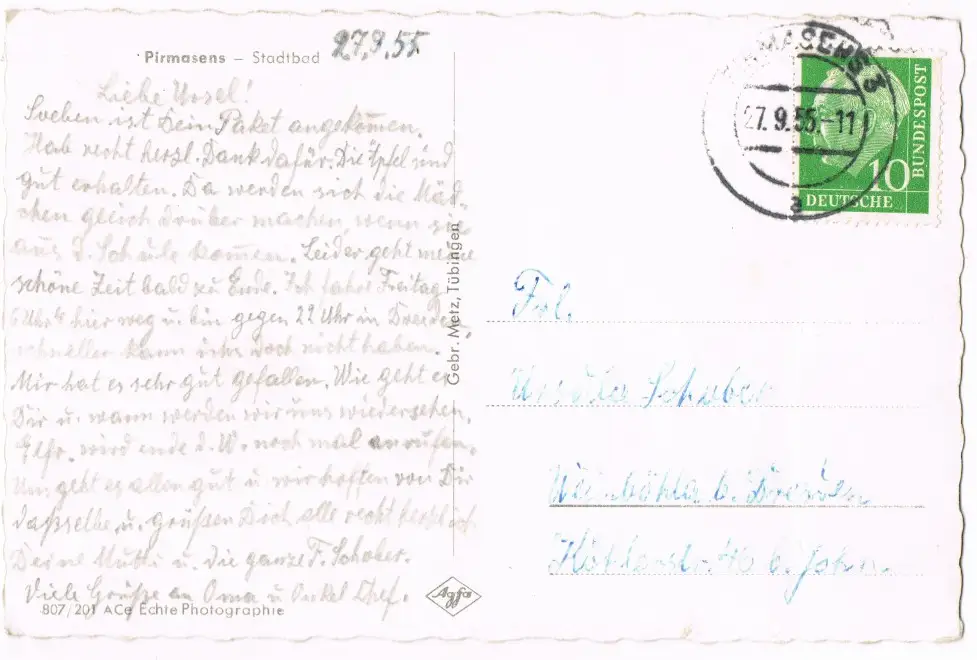 Pirmasens – Stadtbad
27.9.55
Liebe Ursel!
Soeben ist Dein Paket angekommen.
Hab recht herzl. Dank dafür. Die Äpfel sind
gut erhalten. Da werden sich die Mäd-
chen gleich drüber machen, wenn sie
aus d. Schule kommen. Leider geht meine
schöne Zeit bald zu Ende. Ich fahre Freitag
6 Uhr hier weg u. bin gegen 22 Uhr in Dresden,
schneller kann ichs doch nicht haben.
Mir hat es sehr gut gefallen. Wie geht es
Dir u. wann werden wir uns wiedersehen.
Elfr. wird ende d. W. noch mal anrufen.
Uns geht es allen gut u. wir hoffen von Dir
dasselbe u. grüßen Dich alle recht herzlich
Deine Mutti u. die ganze F. Schober.
Viele Grüße an Oma u. Onkel
807/201 ACe Echte Photographie
Gebr. Metz, Tübingen
Agfa
PIRMASENS 3
27.9.55-11
a
10
DEUTSCHE
BUNDESPOST
Frl.
Ursula Schober
Weinböhla b. Dresden
b.